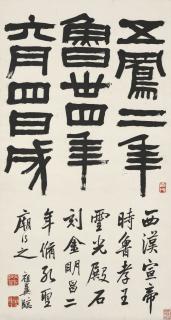 五鳳二年
魯卅四年
六月四日成
西漢宣帝
時魯孝王
靈光殿石
刻金明昌二
年脩孔聖
廟得之